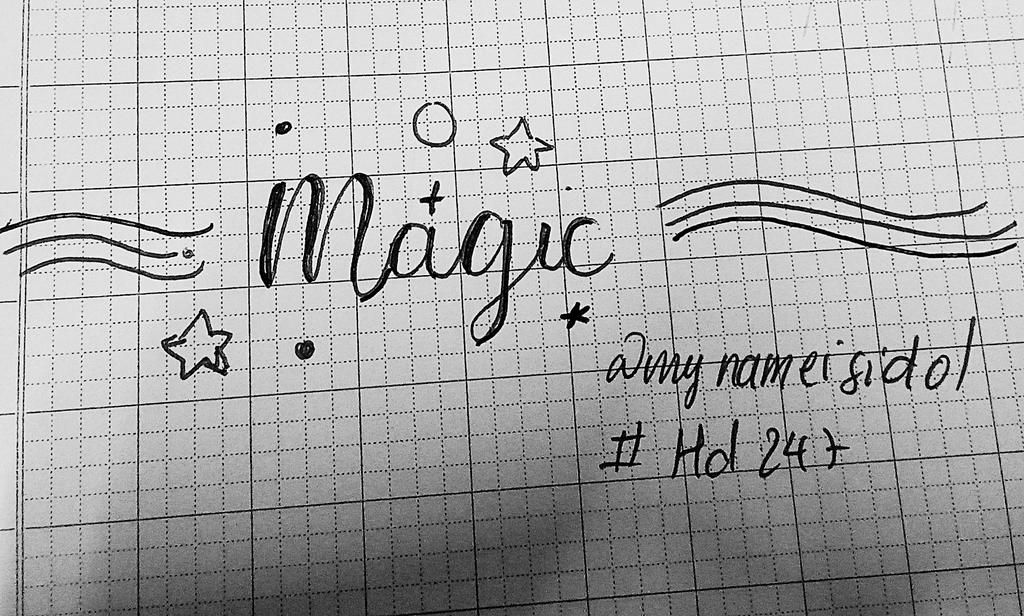 Magic
@mynameisidol
# Hd 247